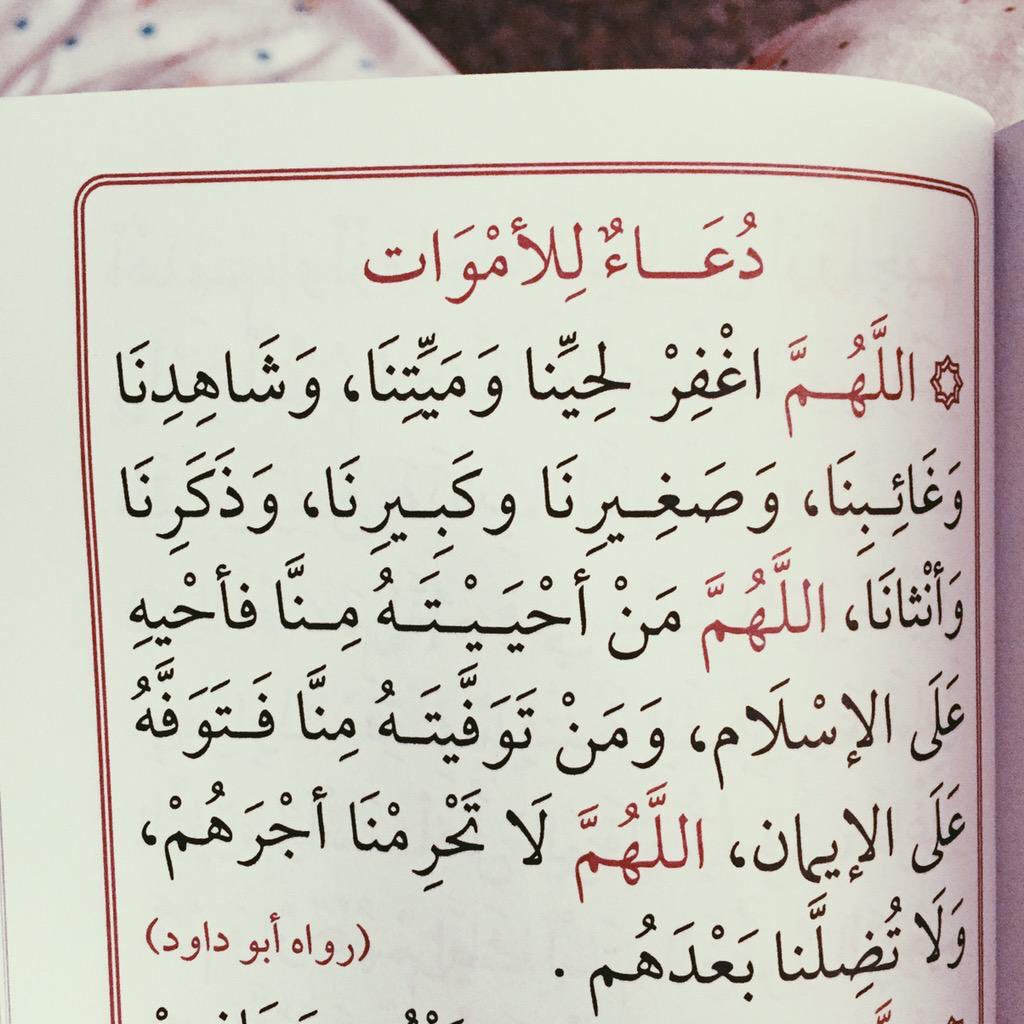 دُعَـــاءٌ لِلأمْوَات
اللَّهُـمَّ اغْفِرْ لحِيِّنا وَمَيِّتِنَا، وَشَاهِدِنَا
وَغَائِـبِنَا، وَصَغِـيرِنَا وكَبِـيرِنَا، وَذَكَرِنَا
وَأنْثانَا، اللَّهُمَّ مَنْ أحْيَـيْـتَـهُ مِـنَّا فأحْيِهِ
عَلَى الإسْلَام، وَمَنْ تَوَفَّيتَـهُ مِنَّا فَـتَوَفَّهُ
عَلَى الإيمان، اللَّهُمَّ لَا تَحْرِمْنَا أجْرَهُمْ،
وَلَا تُضِلَّنا بَعْدَهُم . (رواه أبو داود)